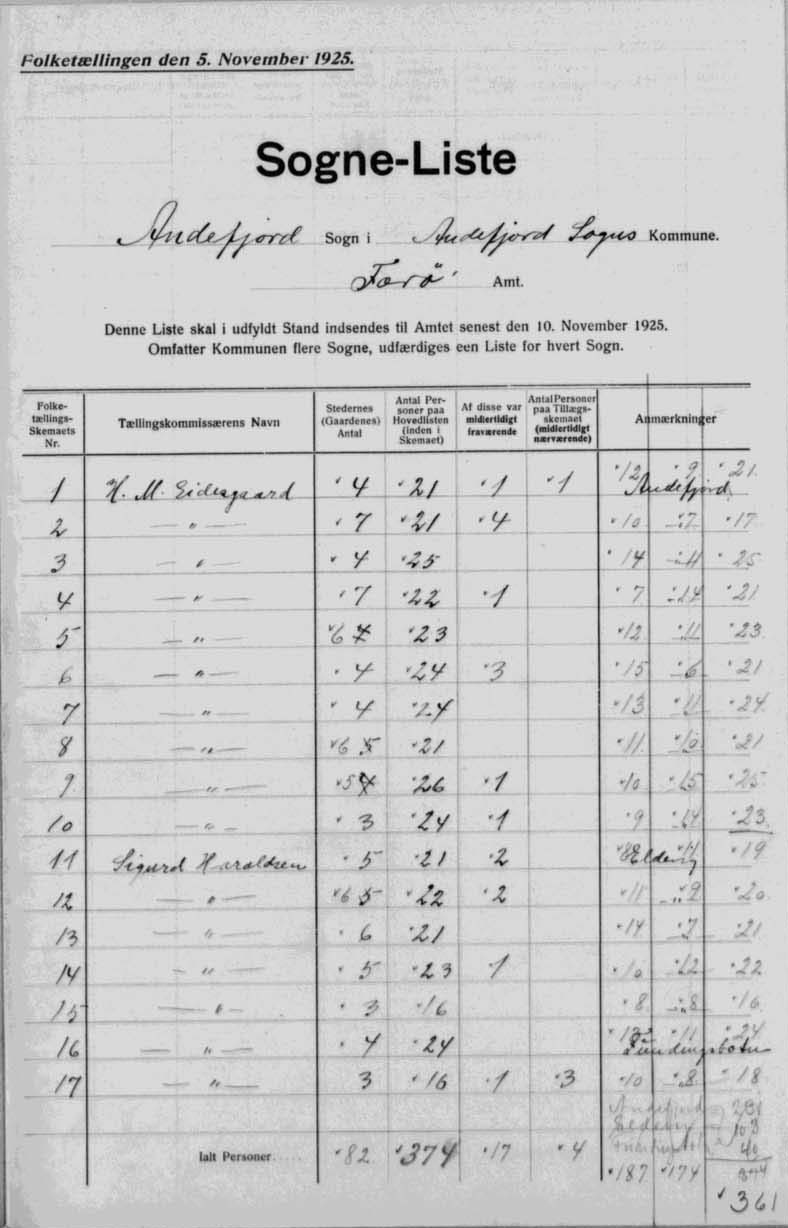 Folketællingen den 5. November 1925.
Sogne-Liste
Andefjord Sogn i Andefjord Sogns Kommune.
Færö Amt.
Denne Liste skal i udfyldt Stand indsendes til Amtet senest den 10. November 1925.
Omfatter Kommunen flere Sogne, udfærdiges een Liste for hvert Sogn.
Folketællings-Skemaets Nr. Tællingskommissærens Navn Stedernes (Gaardenes) Antal Antal Personer paa Hovedlisten (inden i Skemaet) Af disse var midlertidigt fraværende Antal Personer paa Tillægsskemaet (midlertidigt nærværende) Anmærkninger
1 H. M. Eidesgaard 4 21 1 1 12 9 21
Andefjord
2 — " — 7 21 4 10 7 17
3 — " — 4 25 14 11 25
4 — " — 7 22 1 7 14 21
5 — " — 6 23 12 11 23
6 — " — 4 24 3 15 6 21
7 — " — 4 24 13 11 24
8 — " — 6 5 21 11 10 21
9 — " — 5 4 26 1 10 15 25
10 — " — 3 24 1 9 14 23
11 Sigurd Haraldsen 5 21 2 Eldevig 11 19
12 — " — 6 5 22 2 11 9 20
13 — " — 6 21 14 7 21
14 — " — 5 23 1 10 12 22
15 — " — 3 16 8 8 16
16 — " — 4 24 13 11 24
Fundingsbotn
17 — " — 3 16 1 3 10 8 18
Andefjord
Eldevig 103
40
Ialt Personer 82 374 17 4 187 174 374
361